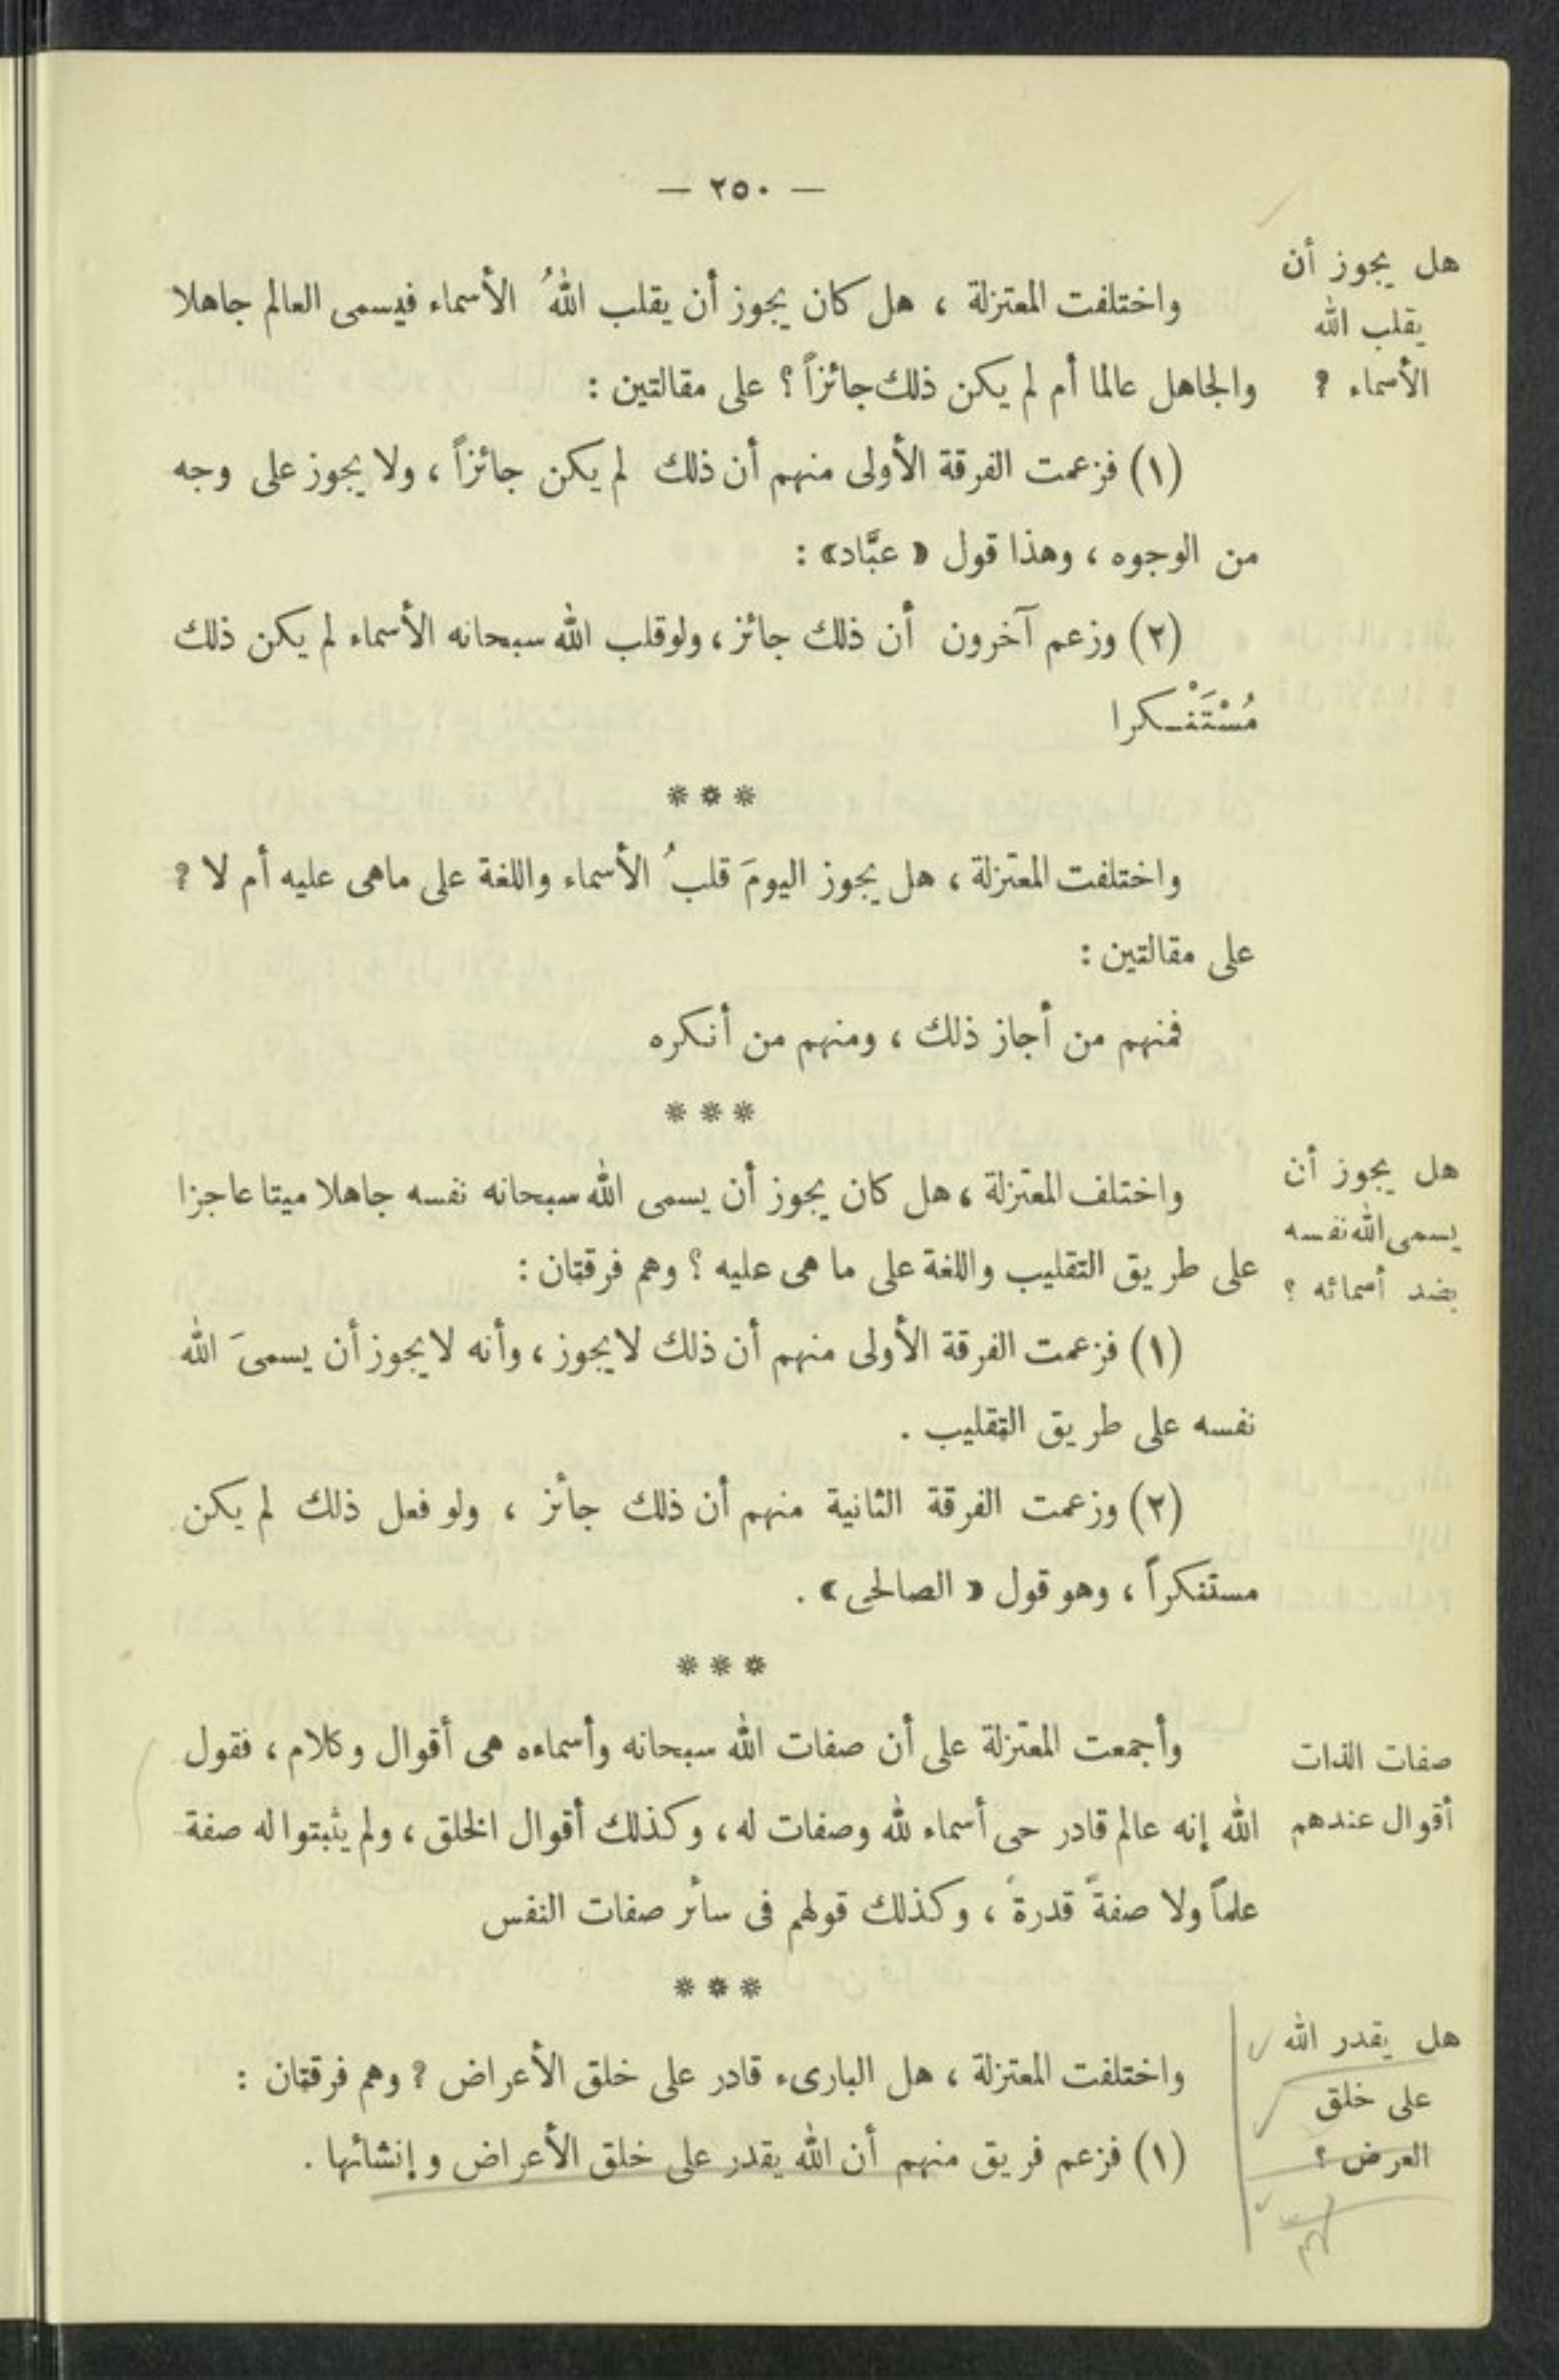 — ٢٥٠ —
هل يجوز أن
يقلب الله
الأسماء ؟
واختلفت المعتزلة ، هل كان يجوز أن يقلب اللهُ الأسماء فيسمى العالم جاهلا
والجاهل عالما أم لم يكن ذلك جائزاً ؟ على مقالتين :
(١) فزعمت الفرقة الأولى منهم أن ذلك لم يكن جائزاً ، ولا يجوز على وجه
من الوجوه ، وهذا قول « عبَّاد» :
(٢) وزعم آخرون أن ذلك جائز ، ولو قلب الله سبحانه الأسماء لم يكن ذلك
مُسْتَنْـكرا
* * *
واختلفت المعتزلة ، هل يجوز اليومَ قلبُ الأسماء واللغة على ماهى عليه أم لا ؟
على مقالتين :
فمنهم من أجاز ذلك ، ومنهم من أنـكره
* * *
هل يجوز أن
يسمى الله نفسه
بضد أسمائه ؟
واختلف المعتزلة ، هل كان يجوز أن يسمى الله سبحانه نفسه جاهلا ميتا عاجزا
على طريق التقليب واللغة على ما هى عليه ؟ وهم فرقتان :
(١) فزعمت الفرقة الأولى منهم أن ذلك لا يجوز ، وأنه لا يجوز أن يسمىَ الله
نفسه على طريق التقليب .
(٢) وزعمت الفرقة الثانية منهم أن ذلك جائز ، ولو فعل ذلك لم يكن
مستنكراً ، وهو قول « الصالحى » .
* * *
صفات الذات
أقوال عندهم
وأجمعت المعتزلة على أن صفات الله سبحانه وأسماءه هى أقوال وكلام ، فقول
الله إنه عالم قادر حى أسماء لله وصفات له ، وكذلك أقوال الخلق ، ولم يثبتوا له صفة
علماً ولا صفةً قدرةً ، وكذلك قولهم فى سائر صفات النفس
* * *
هل يقدر الله
على خلق
العرض ؟
واختلفت المعتزلة ، هل البارىء قادر على خلق الأعراض ؟ وهم فرقتان :
(١) فزعم فريق منهم أن الله يقدر على خلق الأعراض وإنشائها .